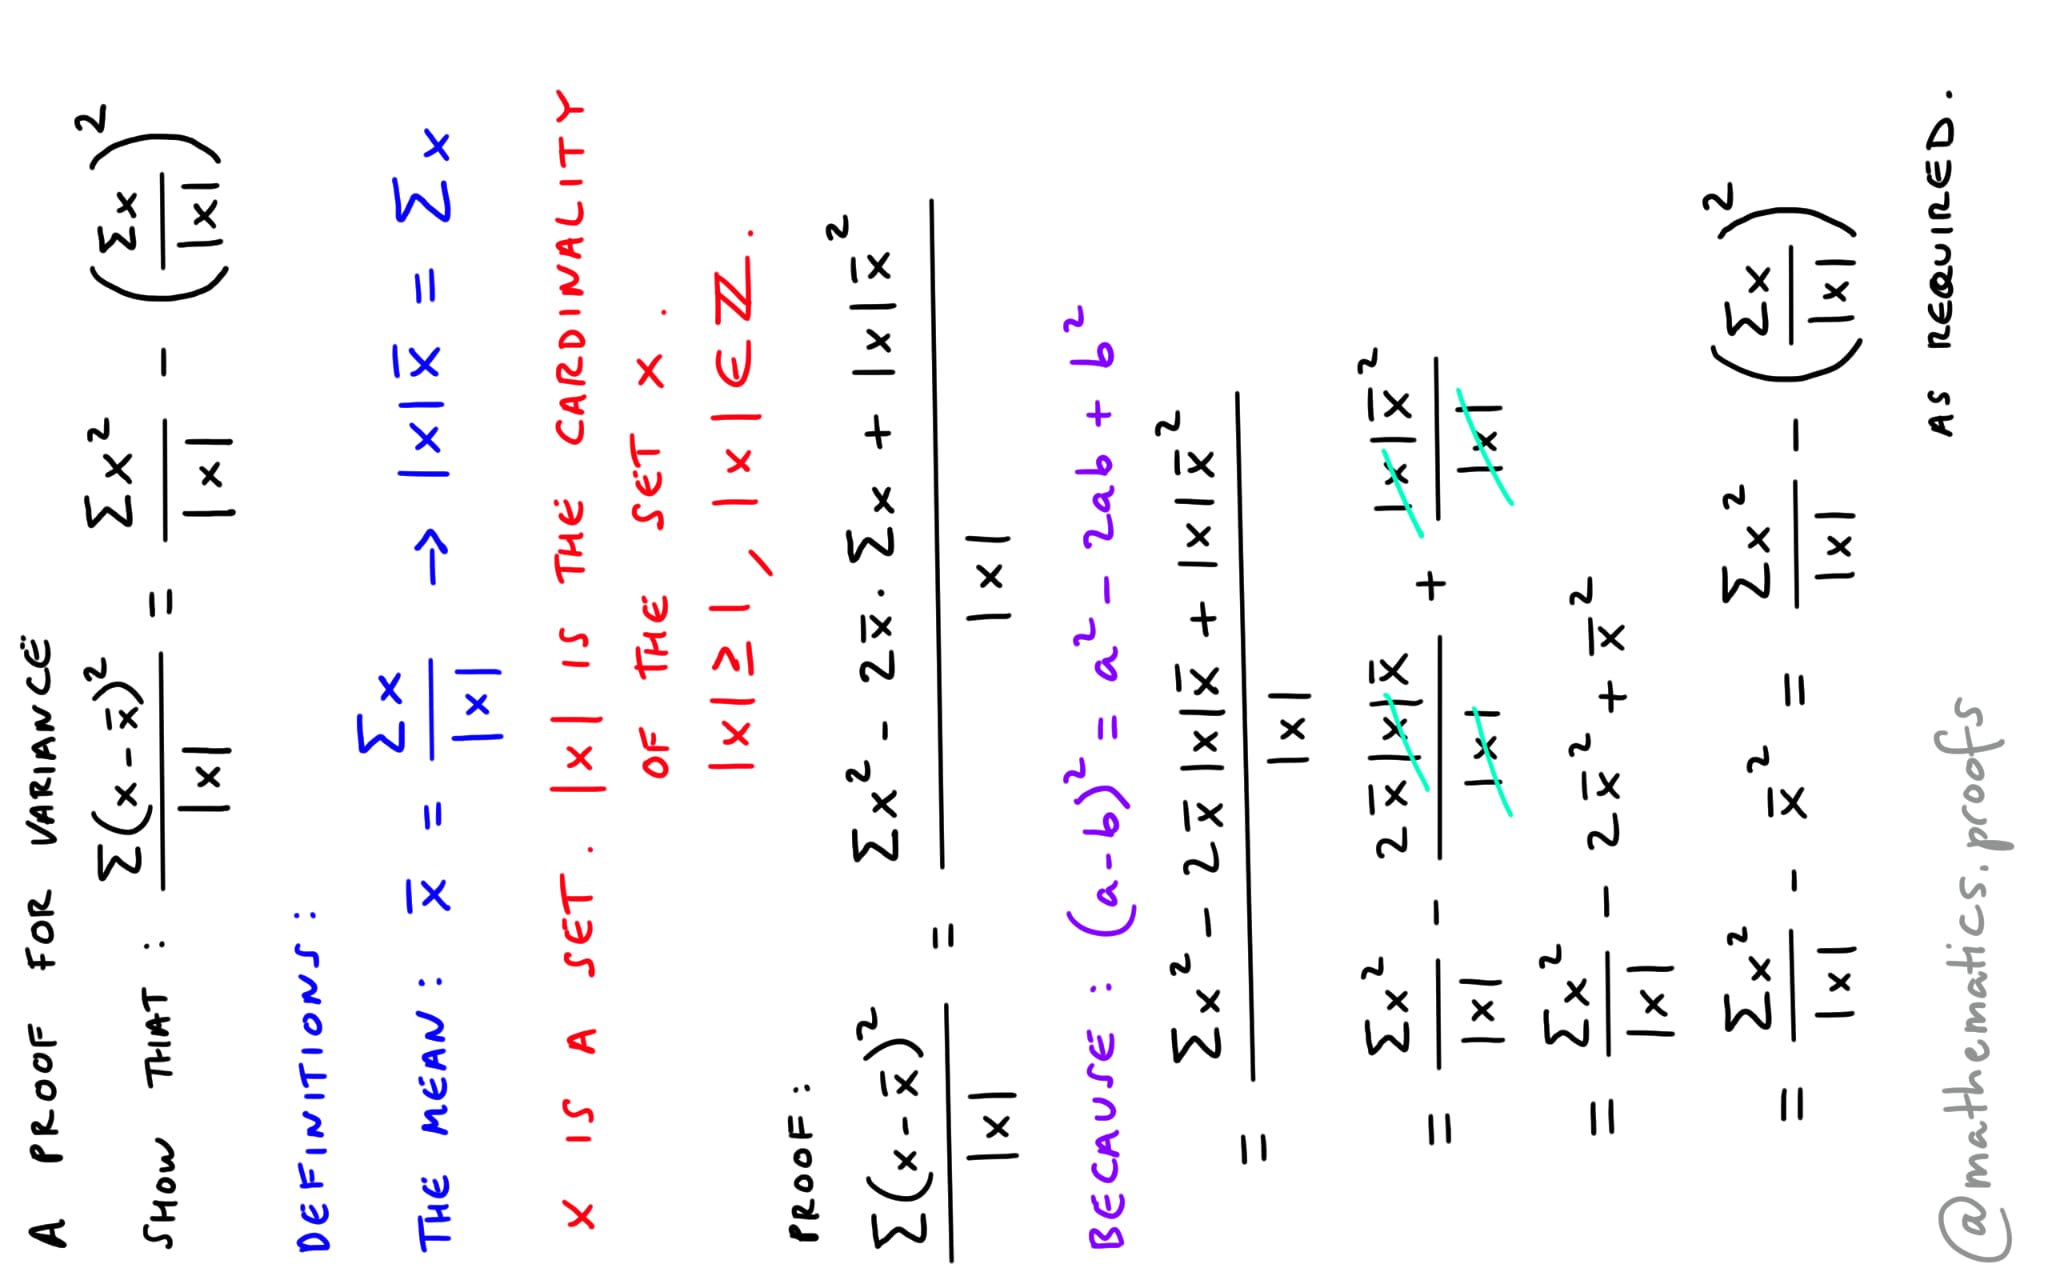 A PROOF FOR VARIANCE
SHOW THAT : Σ(x - x̄)² / |x| = Σx² / |x| - (Σx / |x|)²
DEFINITIONS :
THE MEAN : x̄ = Σx / |x| → |x|x̄ = Σx
X IS A SET. |x| IS THE CARDINALITY
OF THE SET X.
|x| ≥ 1, |x| ∈ ℤ.
PROOF :
Σ(x - x̄)² / |x| = Σx² - 2x̄ · Σx + |x|x̄² / |x|
BECAUSE : (a - b)² = a² - 2ab + b²
= Σx² - 2x̄|x|x̄ + |x|x̄² / |x|
= Σx² / |x| - 2x̄|x|x̄ / |x| + |x|x̄² / |x|
= Σx² / |x| - 2x̄² + x̄²
= Σx² / |x| - x̄² = Σx² / |x| - (Σx / |x|)²
AS REQUIRED.
@mathematics.proofs